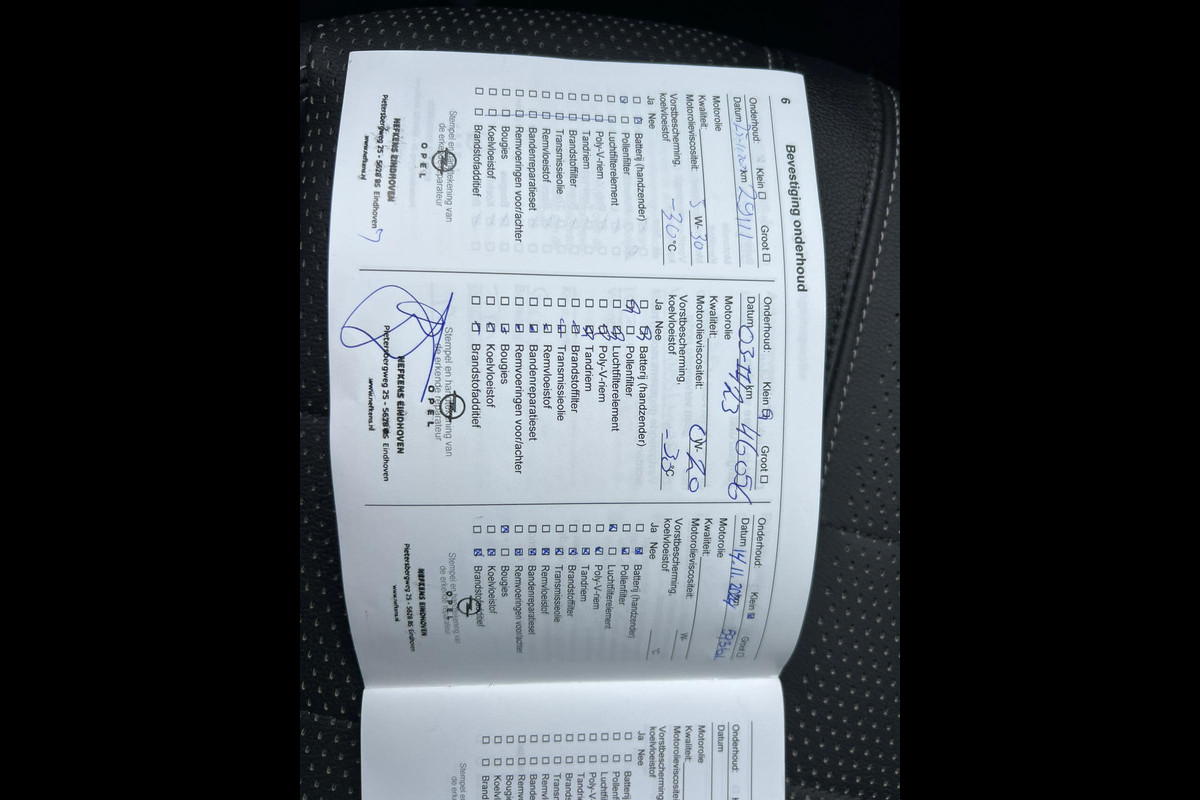 6
Bevestiging onderhoud
Onderhoud: Klein Groot
Datum km 29111
Motorolie
Kwaliteit:
Motorolieviscositeit: 5 W- 30
Vorstbescherming,
koelvloeistof -30 °C
Ja Nee
Batterij (handzender)
Pollenfilter
Luchtfilterelement
Poly-V-riem
Tandriem
Brandstoffilter
Transmissieolie
Remvloeistof
Bandenreparatieset
Remvoeringen voor/achter
Bougies
Koelvloeistof
Brandstofadditief
Stempel en handtekening van
de erkende reparateur
OPEL
NEFKENS EINDHOVEN
Pietersbergweg 25 - 5628 BS Eindhoven
www.nefkens.nl
Onderhoud: Klein Groot
Datum 03-11/23 km 46056
Motorolie
Kwaliteit:
Motorolieviscositeit: 0 W- 20
Vorstbescherming,
koelvloeistof -33 °C
Ja Nee
Batterij (handzender)
Pollenfilter
Luchtfilterelement
Poly-V-riem
Tandriem
Brandstoffilter
Transmissieolie
Remvloeistof
Bandenreparatieset
Remvoeringen voor/achter
Bougies
Koelvloeistof
Brandstofadditief
Stempel en handtekening van
de erkende reparateur
OPEL
NEFKENS EINDHOVEN
Pietersbergweg 25 - 5628 BS Eindhoven
www.nefkens.nl
Onderhoud: Klein Groot
Datum 14.11.2024
Motorolie
Kwaliteit:
Motorolieviscositeit: W-
Vorstbescherming,
koelvloeistof °C
Ja Nee
Batterij (handzender)
Pollenfilter
Luchtfilterelement
Poly-V-riem
Tandriem
Brandstoffilter
Transmissieolie
Remvloeistof
Bandenreparatieset
Remvoeringen voor/achter
Bougies
Koelvloeistof
Brandstofadditief
Stempel en handtekening van
de erkende reparateur
OPEL
NEFKENS EINDHOVEN
Pietersbergweg 25 - 5628 BS Eindhoven
www.nefkens.nl
Onderhoud:
Datum
Motorolie
Kwaliteit:
Motorolieviscositei
Vorstbescherming,
koelvloeistof
Ja Nee
Batterij
Pollenf
Luchtfi
Poly-V-
Tandrie
Brands
Transm
Remvl
Bande
Remvo
Bougie
Koelvl
Brand
Stempel en
de erk